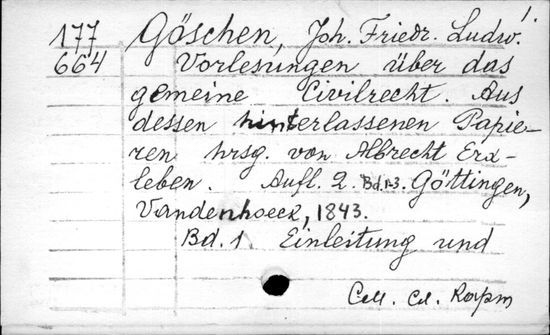 1.
177 Göschen, Joh. Friedr. Ludw.
664 Vorlesungen über das
gemeine Civilrecht. Aus
dessen hinterlassenen Papie-
ren hrsg. von Albrecht Erx-
leben. Aufl. 2. Bd. 1-3. Göttingen,
Vandenhoeck, 1843.
Bd. 1. Einleitung und
Cell. Cd.